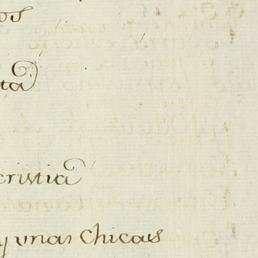 os
ta
cristia
y unas Chicas